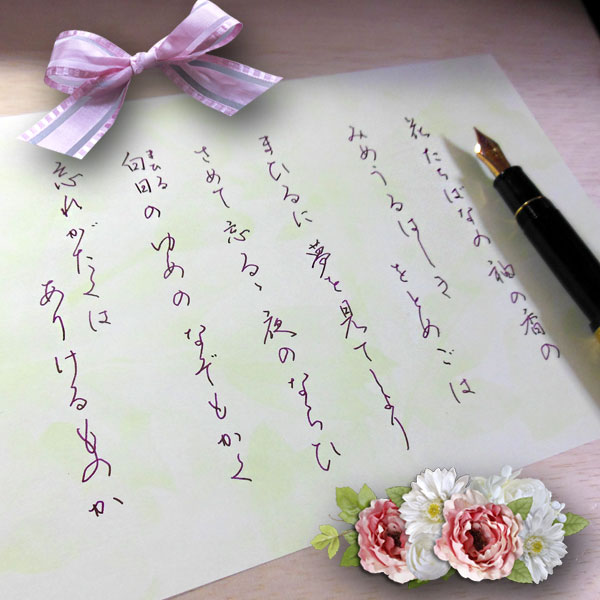 花たちばなの 袖の香の
みめうるはしき をとめごは
まひるに 夢を見てしより
さめて忘るゝ 夜のならひ
白日の ゆめの なぞもかく
まひる
忘れがたくは ありけるものか